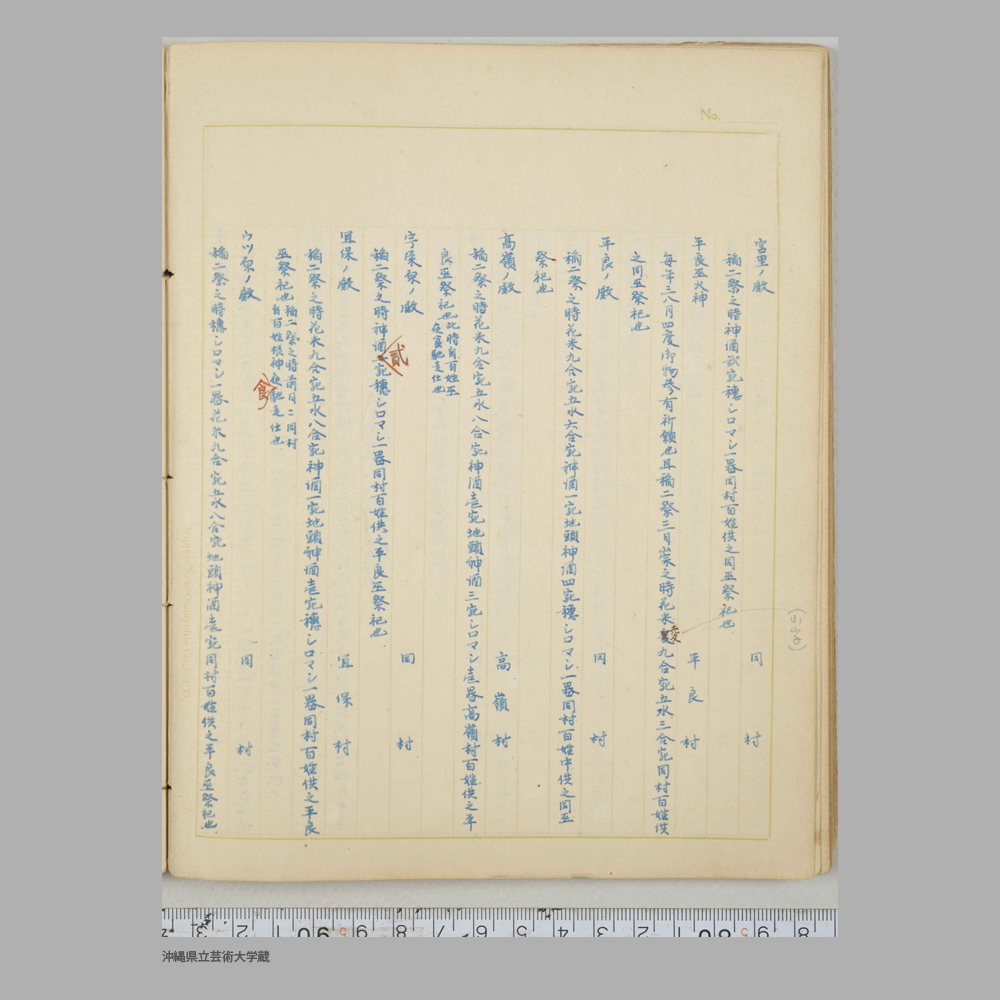 No.
宮里ノ殿 同村
稲二祭之時神酒弐宛穂シロマシ一器同村百姓供之同巫祭祀也
平良巫火神 平良村
毎年三八月四度御物参有祈願也且稲二祭三日崇之時花米九合宛五水三合宛同村百姓供
之同巫祭祀也
平良ノ殿 同村
稲二祭之時花米九合宛五水六合宛神酒一宛地頭神酒四宛穂シロマシ一器同村百姓中供之同巫
祭祀也
高嶺ノ殿 高嶺村
稲二祭之時花米九合宛五水八合宛神酒壱宛地頭神酒三宛シロマシ壱器高嶺村百姓供之平
良巫祭祀也此時自百姓巫
馳走仕也
ノ殿 同村
稲二祭之時神酒一宛穂シロマシ一器同村百姓供之平良巫祭祀也
貳
宜保ノ殿 宜保村
稲二祭之時花米九合宛五水八合宛神酒一宛地頭神酒壱宛穂シロマシ一器同村百姓供之平良
巫祭祀也稲二祭之時前日ニ同村
自百姓馳走仕也
食
ノ殿 同村
稲二祭之時穂シロマシ一器花米九合宛五水八合宛地頭神酒壱宛同村百姓供之平良巫祭祀也
沖縄県立芸術大学蔵